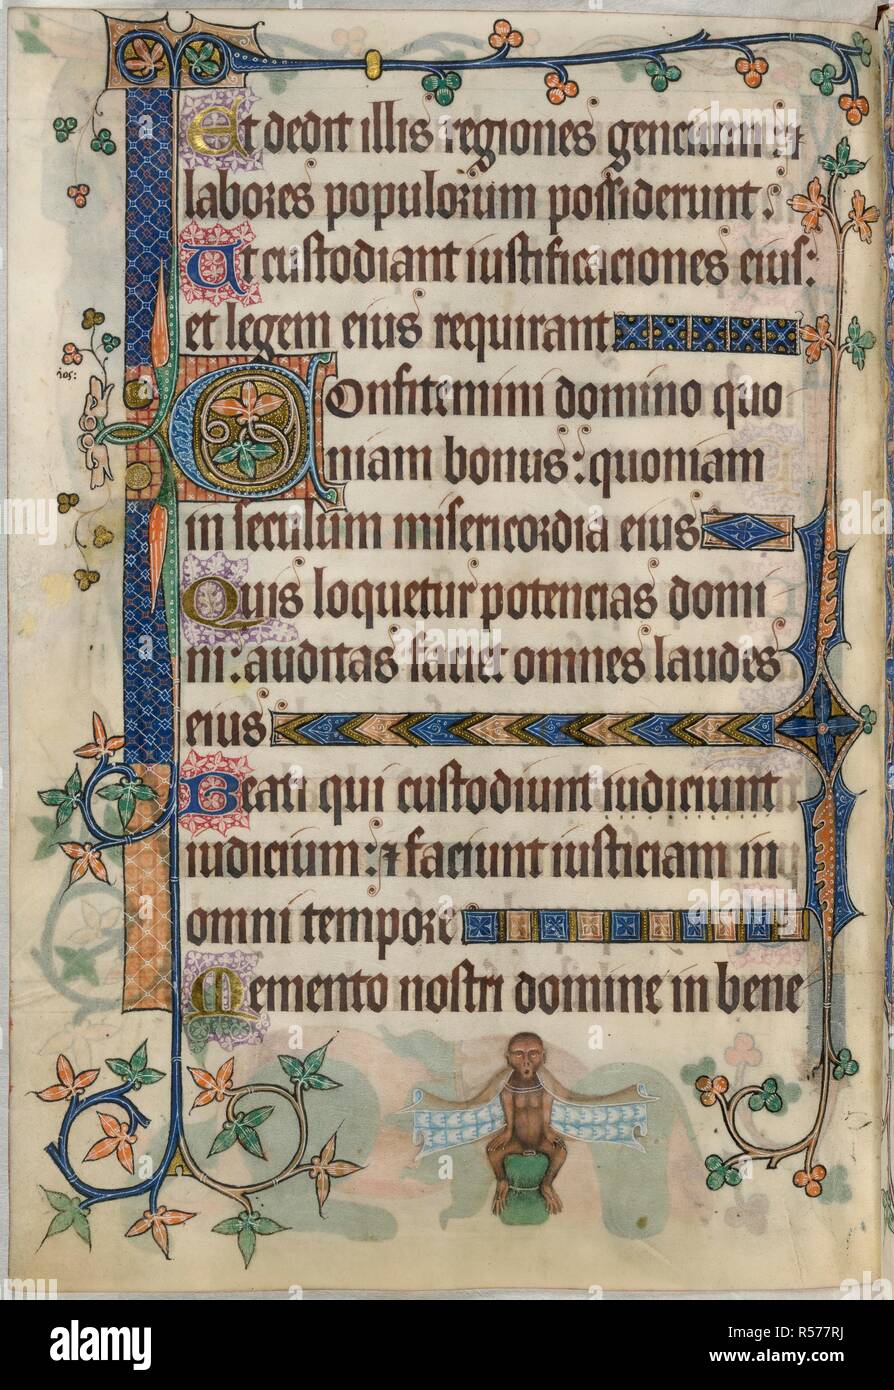 Et dedit illis regiones gencium: ⁊
labores populorum possiderunt.
Ut custodiant iustificaciones eius:
et legem eius requirant.
105:
Confitemini domino quo
niam bonus: quoniam
in seculum misericordia eius
Quis loquetur potencias domi
ni: auditas faciet omnes laudes
eius
Beati qui custodiunt iudiciunt
iudicium: ⁊ faciunt iusticiam in
omni tempore
Memento nostri domine in bene
a
alamy stock photo
alamy
Image ID: R577RJ
www.alamy.com